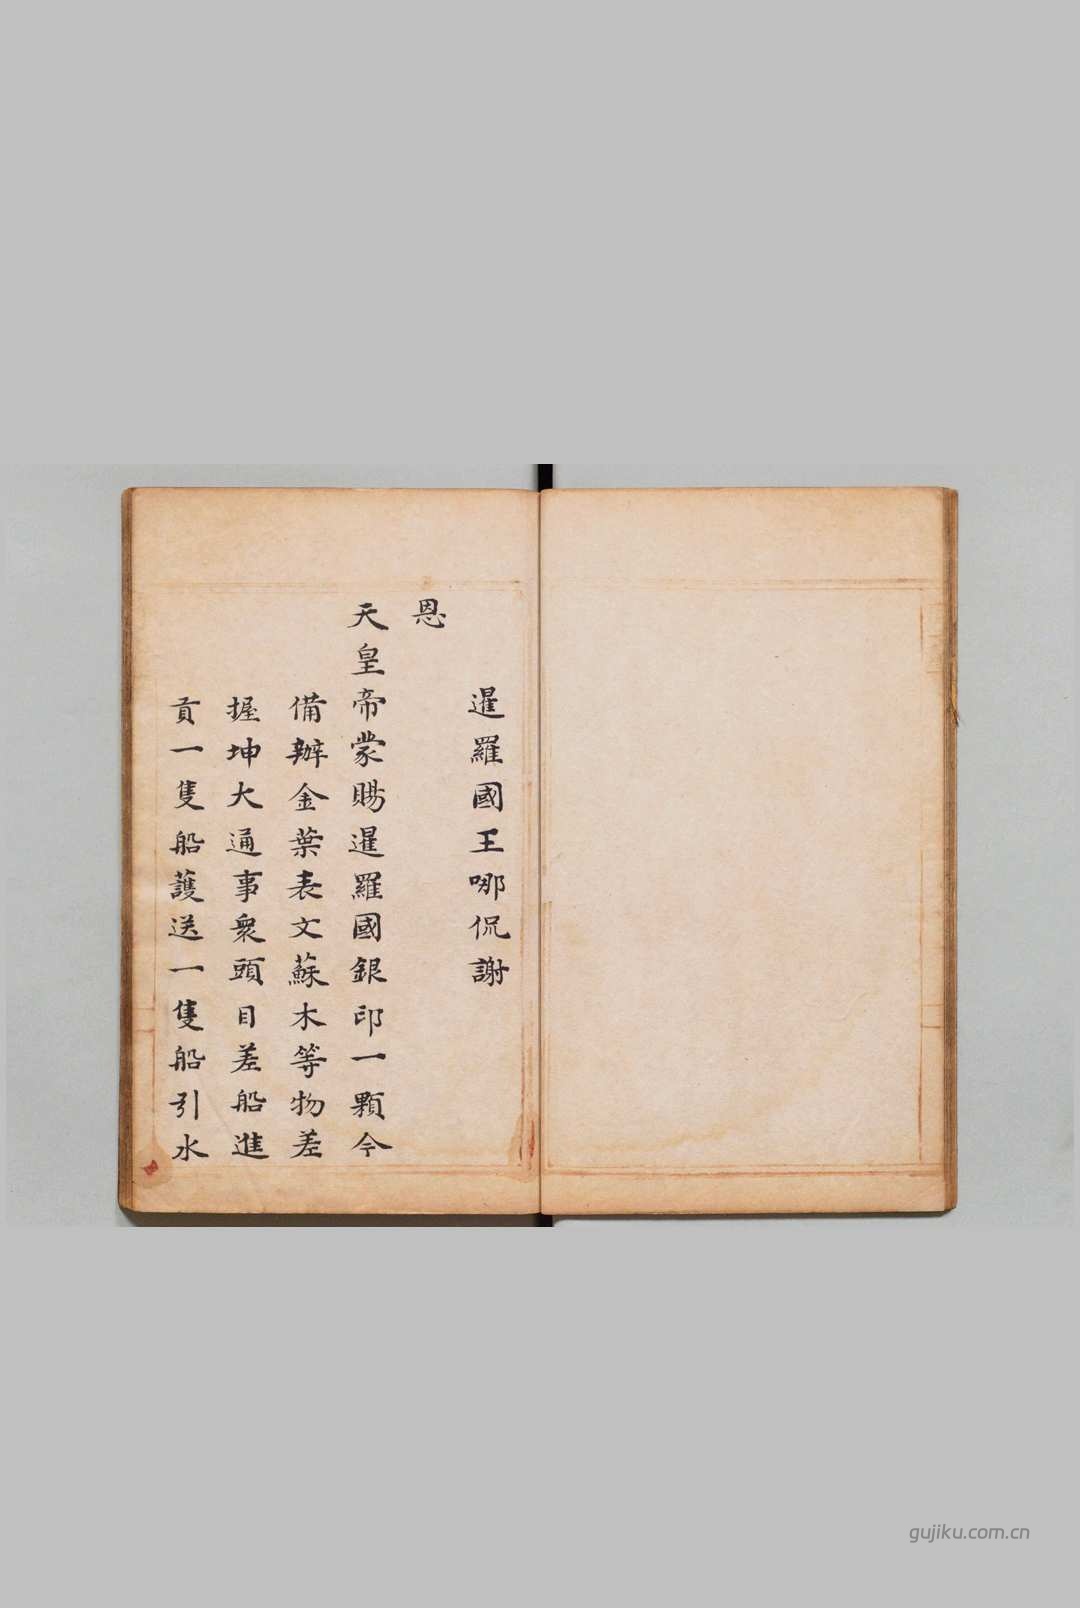 暹羅國王哪侃謝
恩
天皇帝蒙賜暹羅國銀印一顆今
備辦金葉表文蘇木等物差
握坤大通事衆頭目差船進
貢一隻船護送一隻船引水
gujiku.com.cn